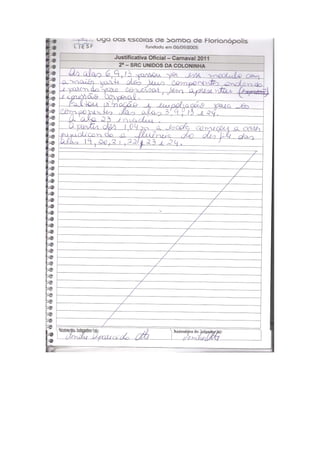 Liga das Escolas de Samba de Florianópolis
Fundado em 06/09/2005
Justificativa Oficial – Carnaval 2011
2ª – SRC UNIDOS DA COLONINHA
As alas 6, 9, 13 passou por esse modulo com
a maior parte dos seus componentes andando
e quando não cantavam, sem apresentar
expressão corporal.
Faltou criação e empolgação para os
componentes das alas 3, 9, 13 e 24.
A ala 23
A partir dos 1,04 m a escola começou a correr
prejudicando a fluência do desfile das
alas 19, 20, 21, 22, 23 e 24.
Nome do Julgador (a):
Assinatura do Julgador (a):